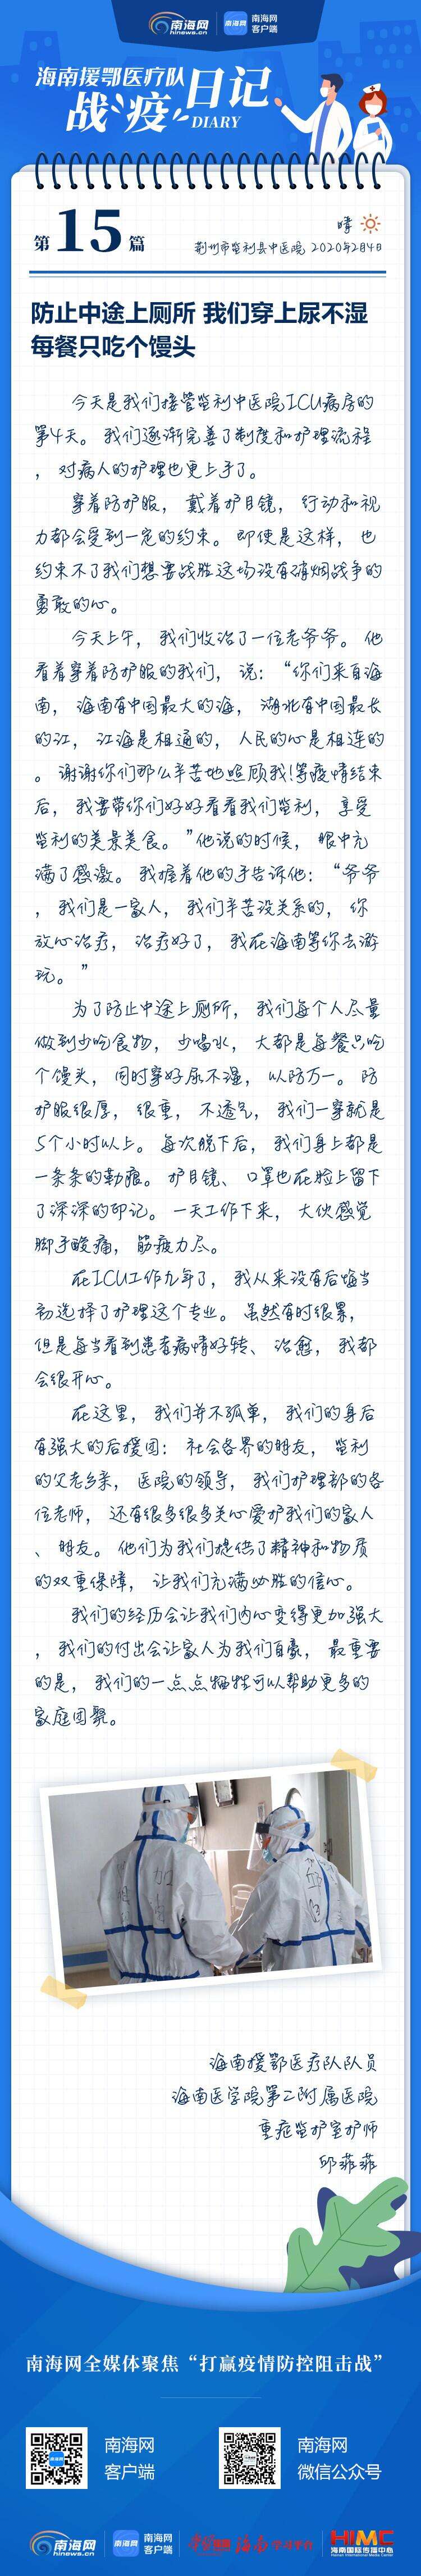 南海网
hinews.cn
南海网
客户端
海南援鄂医疗队
战“疫”日记
DIARY
第15篇
晴
荆州市监利县中医院 2020年2月4日
防止中途上厕所 我们穿上尿不湿
每餐只吃个馒头
今天是我们接管监利中医院ICU病房的
第4天。我们逐渐完善了制度和护理流程
，对病人的护理也更上手了。
穿着防护服，戴着护目镜，行动和视
力都会受到一定的约束。即使是这样，也
约束不了我们想要战胜这场没有硝烟战争的
勇敢的心。
今天上午，我们收治了一位老爷爷。他
看着穿着防护服的我们，说：“你们来自海
南，海南有中国最大的海，湖北有中国最长
的江，江海是相通的，人民的心是相连的
。谢谢你们那么辛苦地照顾我!等疫情结束
后，我要带你们好好看看我们监利，享受
监利的美景美食。”他说的时候，眼中充
满了感激。我握着他的手告诉他：“爷爷
，我们是一家人，我们辛苦没关系的，你
放心治疗，治疗好了，我在海南等你去游
玩。”
为了防止中途上厕所，我们每个人尽量
做到少吃食物，少喝水，大都是每餐只吃
个馒头，同时穿好尿不湿，以防万一。防
护服很厚，很重，不透气，我们一穿就是
5个小时以上。每次脱下后，我们身上都是
一条条的勒痕。护目镜、口罩也在脸上留下
了深深的印记。一天工作下来，大伙感觉
脚手酸痛，筋疲力尽。
在ICU工作九年了，我从来没有后悔当
初选择了护理这个专业。虽然有时很累，
但是每当看到患者病情好转、治愈，我都
会很开心。
在这里，我们并不孤单，我们的身后
有强大的后援团：社会各界的朋友，监利
的父老乡亲，医院的领导，我们护理部的各
位老师，还有很多很多关心爱护我们的家人
、朋友。他们为我们提供了精神和物质
的双重保障，让我们充满必胜的信心。
我们的经历会让我们内心变得更加强大
，我们的付出会让家人为我们自豪，最重要
的是，我们的一点点牺牲可以帮助更多的
家庭团聚。
加油
海南援鄂医疗队队员
海南医学院第二附属医院
重症监护室护师
邱菲菲
南海网全媒体聚焦“打赢疫情防控阻击战”
南海网
客户端
南海网
微信公众号
南海网
hinews.cn
南海网
客户端
海南学习平台
HIMC
海南国际传播中心
Hainan International Media Center